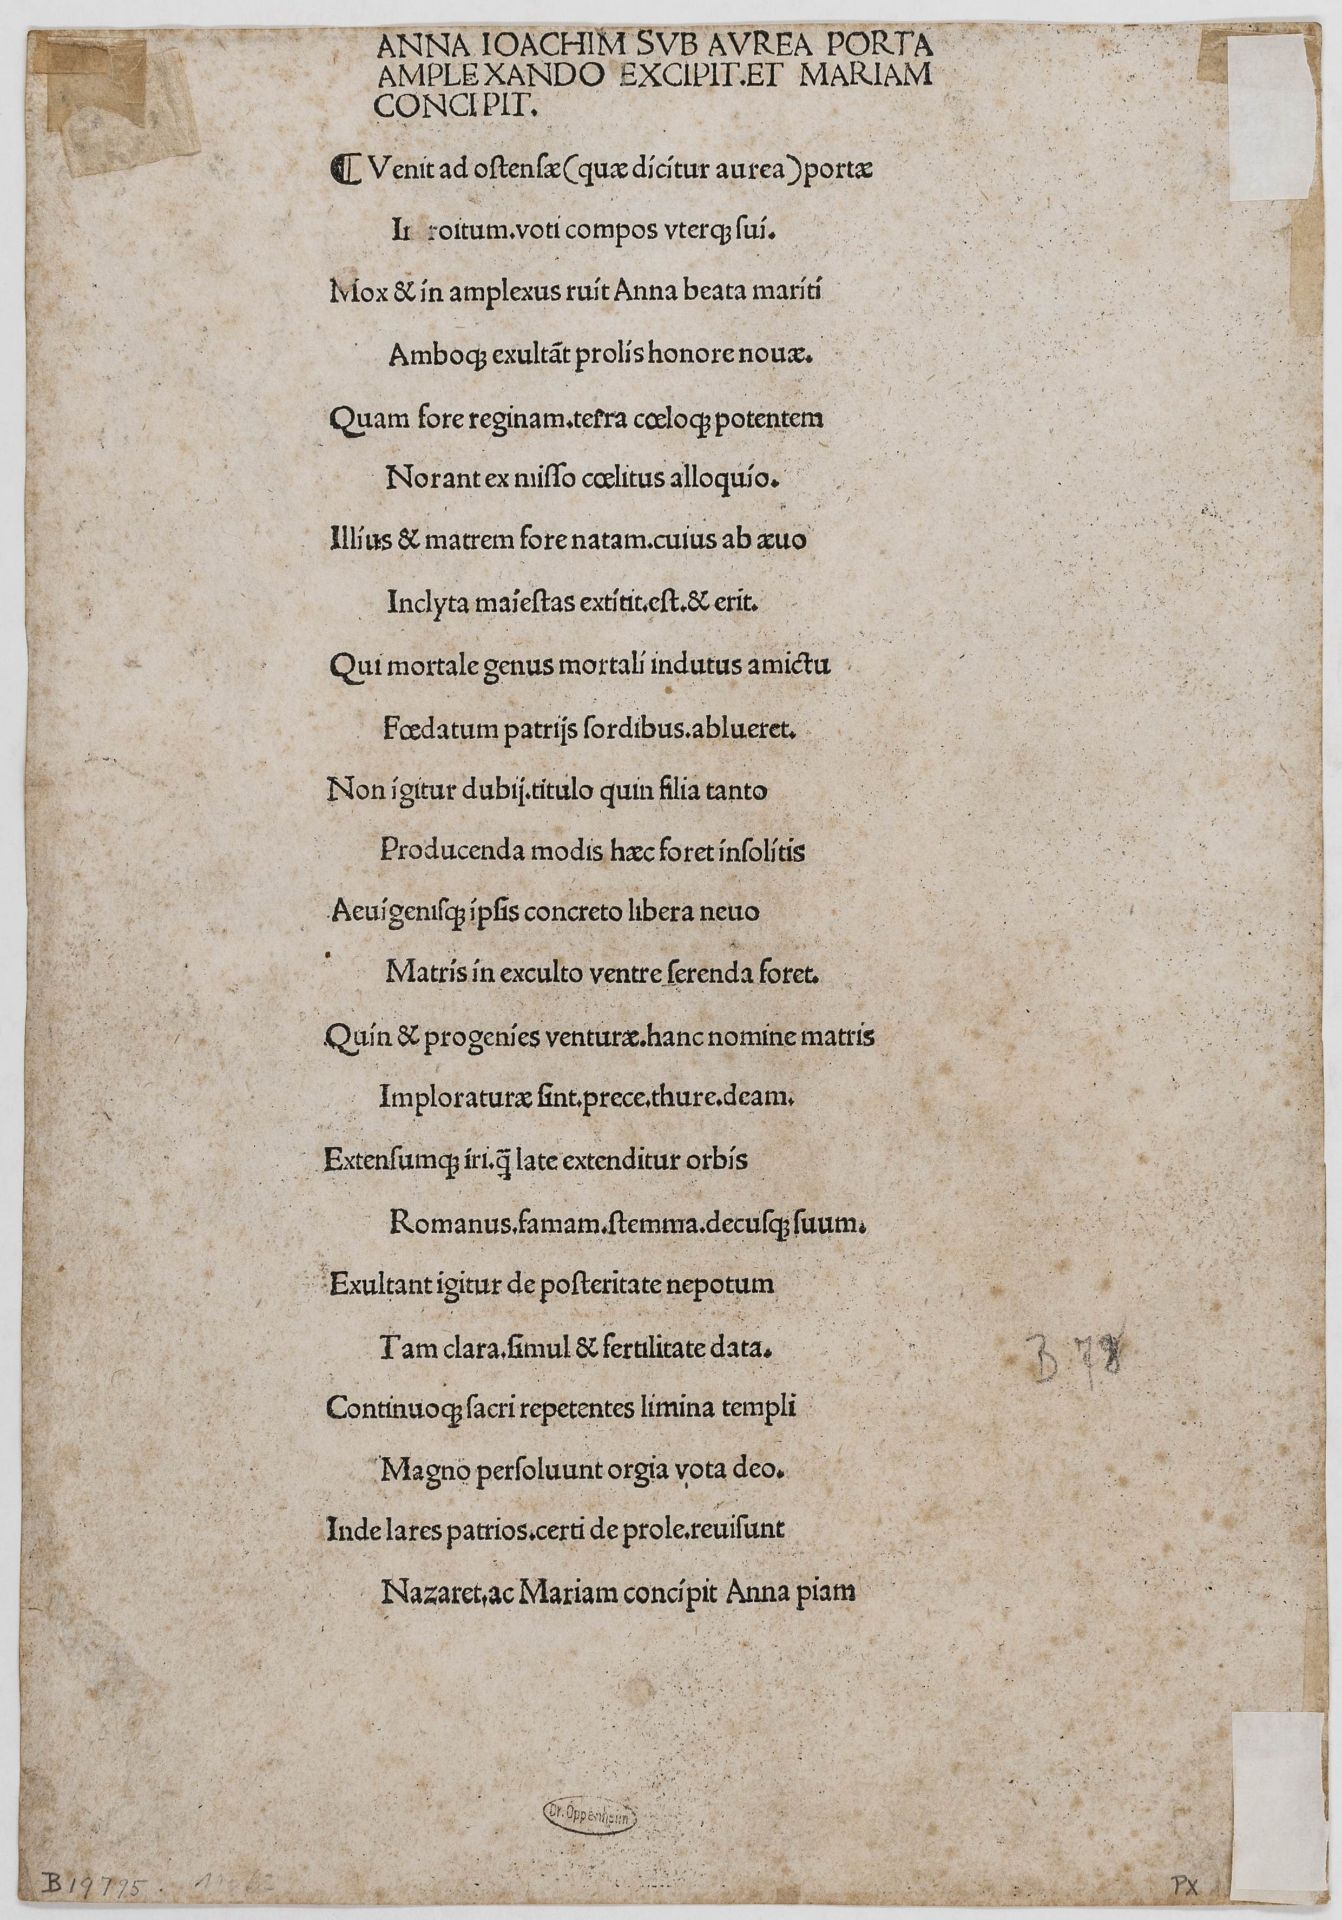 ANNA IOACHIM SVB AVREA PORTA
AMPLEXANDO EXCIPIT.ET MARIAM
CONCIPIT.
¶ Venit ad ostensæ (quæ dicitur aurea) portæ
voti compos vterqȝ sui.
Mox & in amplexus ruit Anna beata mariti
Amboqȝ exultāt prolis honore nouæ.
Quam fore reginam.terra cœloqȝ potentem
Norant ex misso cœlitus alloquio.
Illius & matrem fore natam.cuius ab æuo
Inclyta maiestas extitit.est.& erit.
Qui mortale genus mortali indutus amictu
Fœdatum patrijs sordibus.ablueret.
Non igitur dubij.titulo quin filia tanto
Producenda modis hæc foret insolitis
Aeuigenisqȝ ipsis concreto libera neuo
Matris in exculto ventre serenda foret.
Quin & progenies venturæ.hanc nomine matris
Imploraturæ sint.prece.thure.deam.
Extensumqȝ iri.q̄ late extenditur orbis
Romanus.famam.stemma.decusqȝ suum.
Exultant igitur de posteritate nepotum
Tam clara.simul & fertilitate data.
Continuoqȝ sacri repetentes limina templi
Magno persoluunt orgia vota deo.
Inde lares patrios.certi de prole.reuisunt
Nazaret.ac Mariam concipit Anna piam
B 78
Dr. Oppenheim
B 19795.
PX